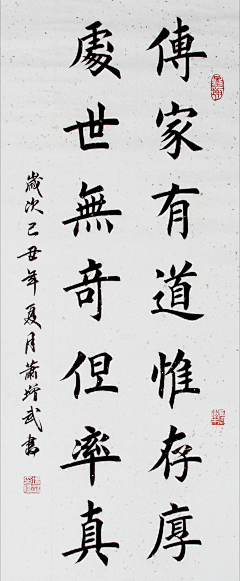 傳家有道惟存厚
處世無奇但率真
歲次己丑年夏月蕭增武書